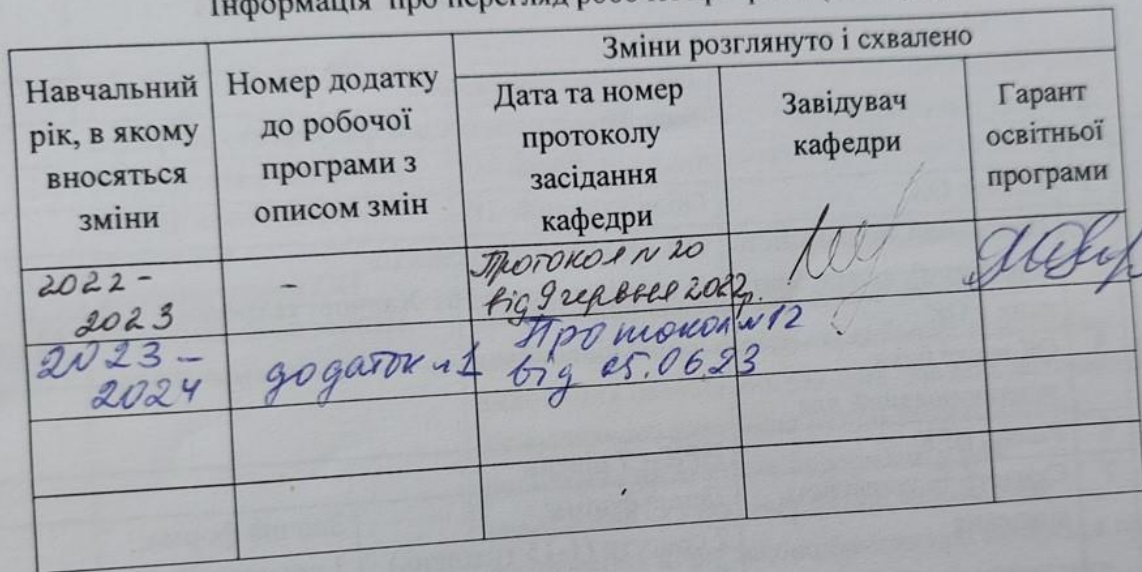 Інформація про перегляд
Зміни розглянуто і схвалено
Навчальний
рік, в якому
вносяться
зміни
Номер додатку
до робочої
програми з
описом змін
Дата та номер
протоколу
засідання
кафедри
Завідувач
кафедри
Гарант
освітньої
програми
2022 -
2023
-
Протокол N 20
від 9 червня 2022р.
2023 -
2024
додаток №1
Протокол №12
від 05.06.23